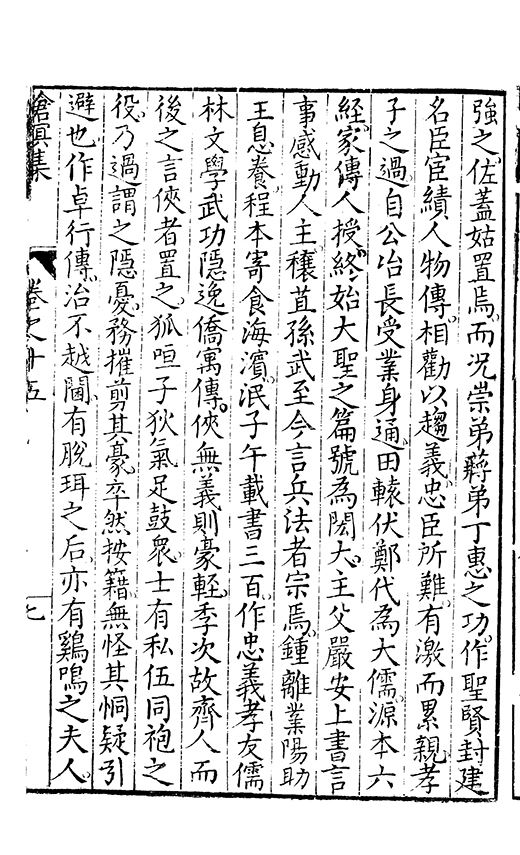 強之。佐蓋姑置焉。而況崇弟蔣弟丁惠之功。作聖賢封建
名臣宦績人物傳。相勸以趨義。忠臣所難。有激而累親。孝
子之過。自公冶長受業身通。田轅伏鄭代為大儒。源本六
經。家傳人授。終始大聖之篇。號為閎大。主父嚴安上書言
事。感動人主。穰苴孫武至今言兵法者宗焉。鍾離業陽助
王息養。程本寄食海濱。泯子午載書三百。作忠義孝友儒
林文學武功隱逸僑寓傳。俠無義則豪輕。季次故齊人而
後之言俠者置之。狐咺子狄氣足鼓眾。士有私伍同袍之
役。乃過謂之隱憂。務摧剪其豪。卒然按籍。無怪其恫疑引
避也。作卓行傳。治不越閫。有脫珥之后。亦有鷄鳴之夫人。
滄溟集
卷之十五
七